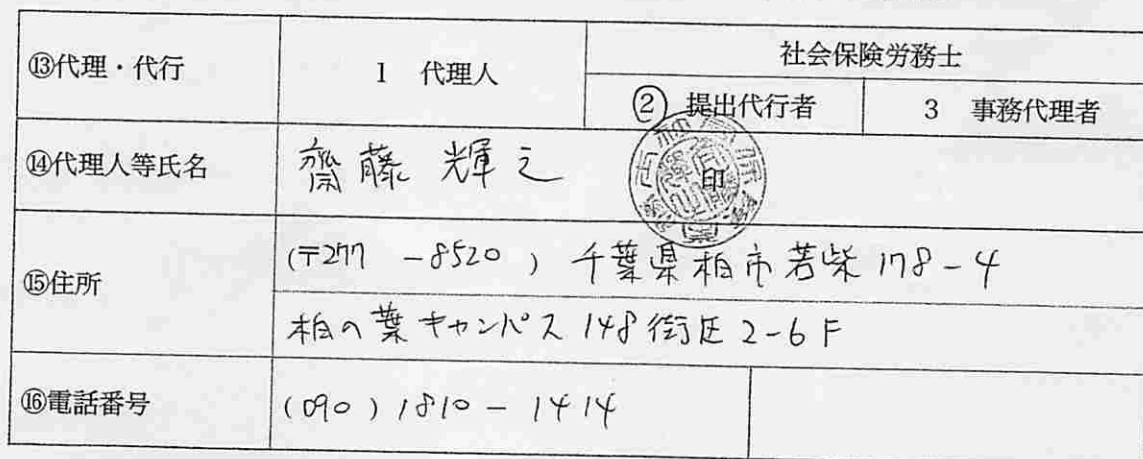 ⑬代理・代行
1 代理人
社会保険労務士
② 提出代行者
3 事務代理者
⑭代理人等氏名
齋藤 輝之
印
⑮住所
(〒277 -8520 ) 千葉県柏市若柴178-4
柏の葉キャンパス148街区2-6F
⑯電話番号
(090) 1810 - 1414